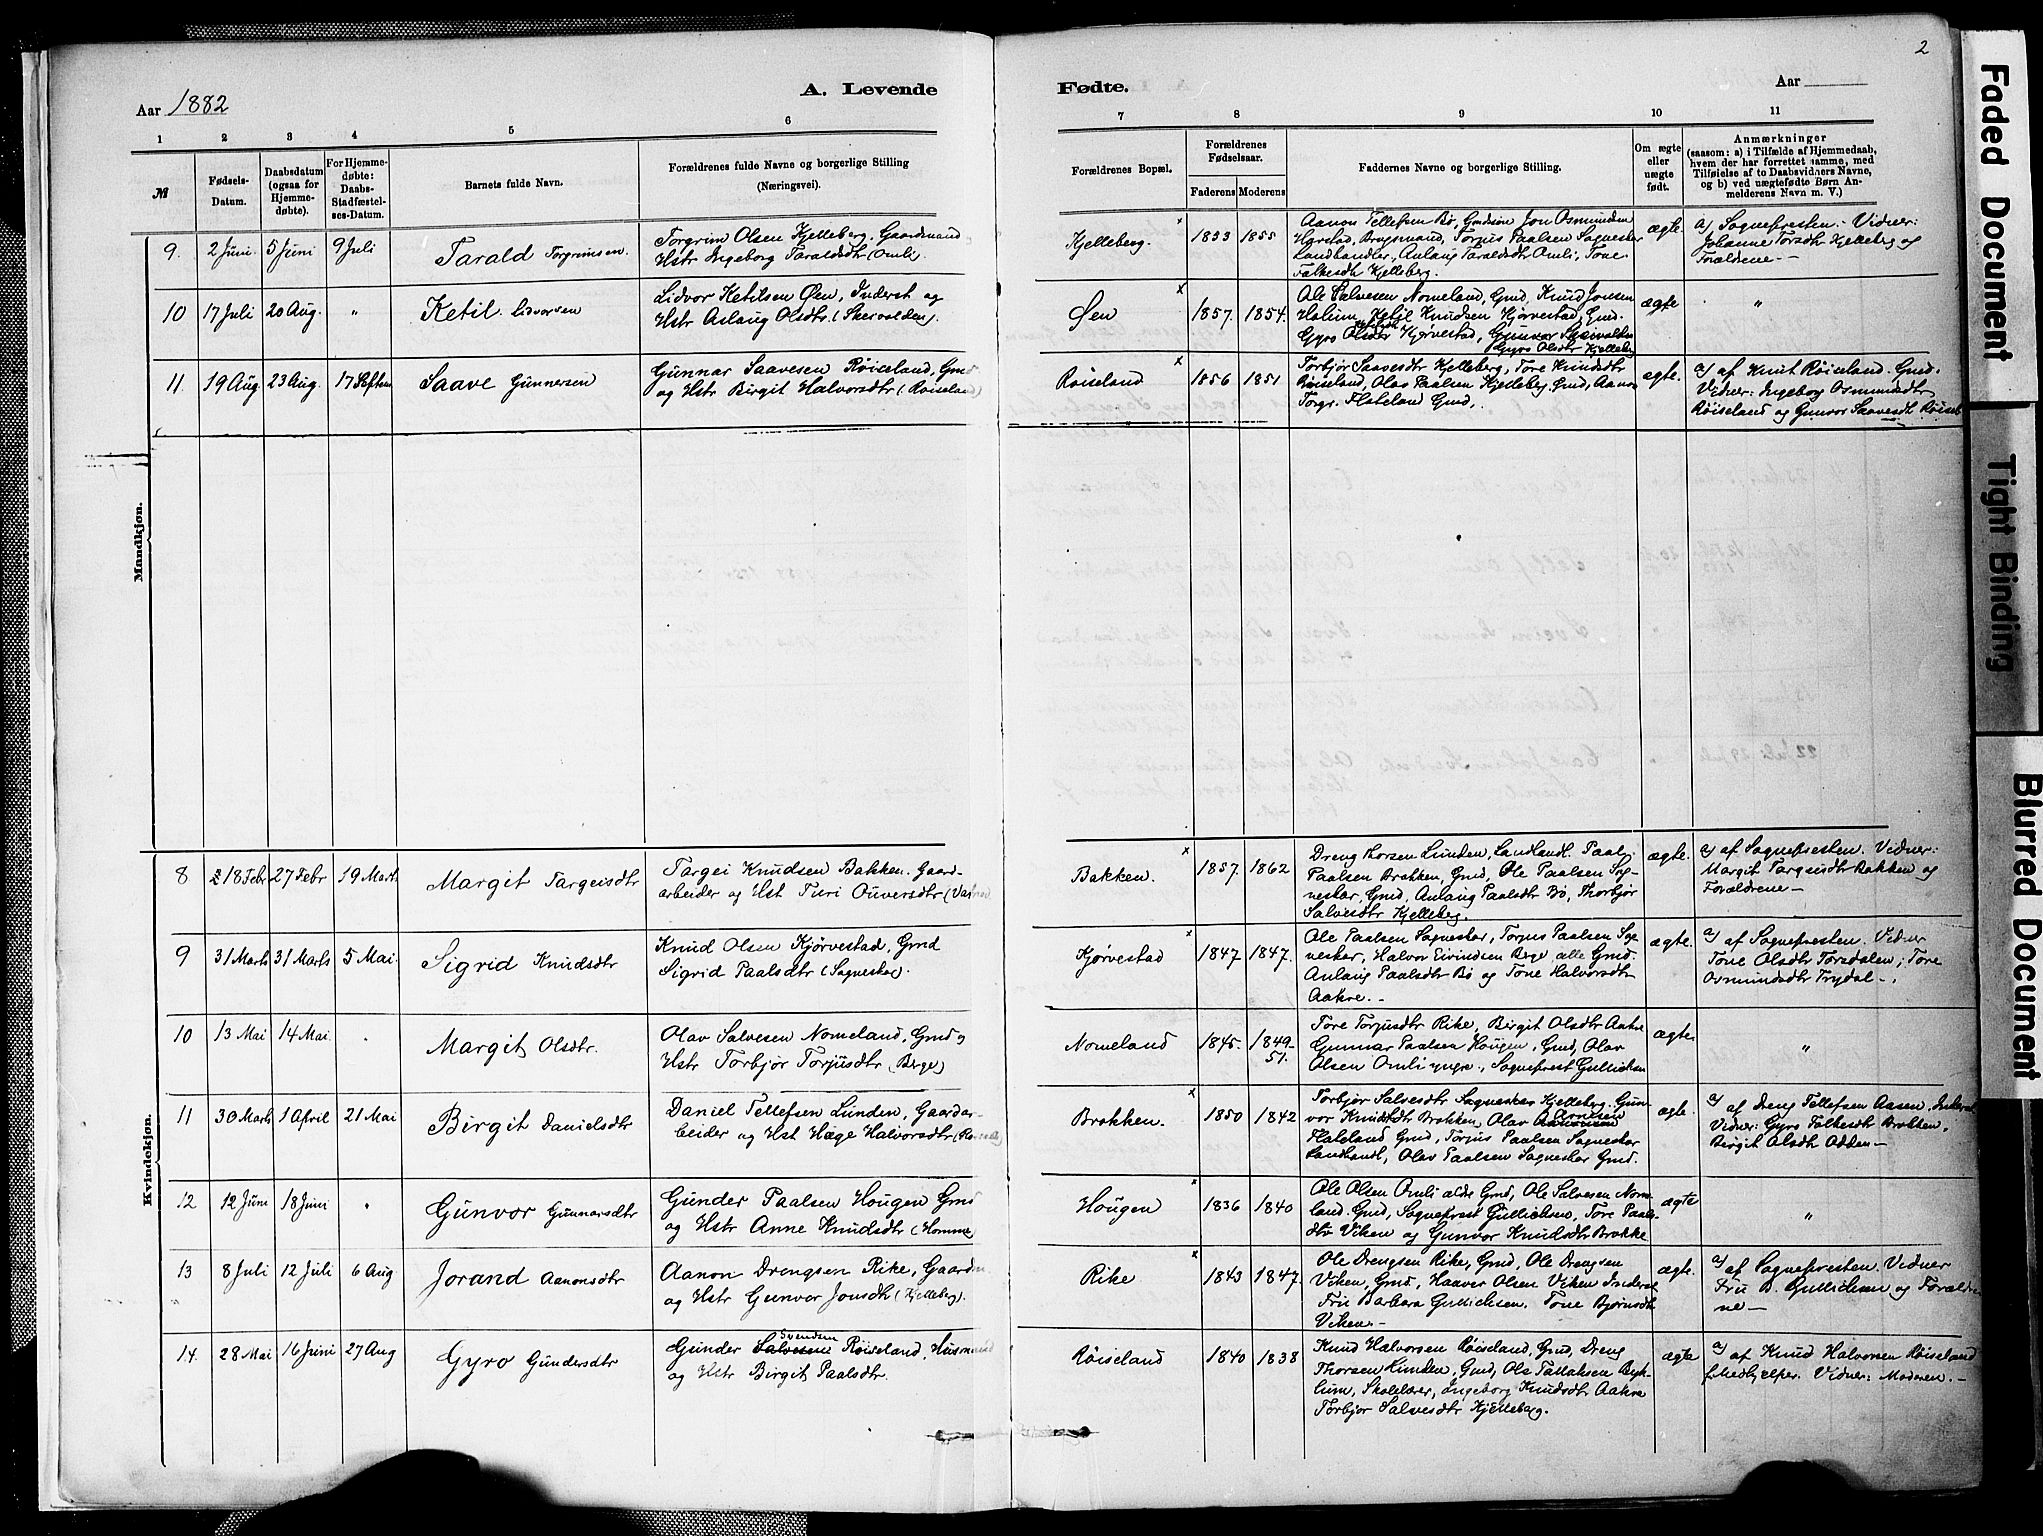 2
Aar 1882
A. Levende
Fødte.
Aar
1 2 3 4 5 6
7 8 9 10 11
№
Fødsels-
Datum.
Daabsdatum
(ogsaa for
Hjemme-
døbte).
For Hjemme-
døbte:
Daabs-
Stadfæstel-
ses-Datum.
Barnets fulde Navn.
Forældrenes fulde Navne og borgerlige Stilling
(Næringsvei).
Forældrenes Bopæl.
Forældrenes
Fødselsaar.
Faderens Moderens
Faddernes Navne og borgerlige Stilling.
Om ægte
eller
uægte
født.
Anmærkninger
(saasom: a) i Tilfælde af Hjemmedaab,
hvem der har forrettet samme, med
Tilføielse af to Daabsvidners Navne,
og b) ved uægtefødte Børn An-
melderens Navn m. V.)
Mandkjøn.
9. 2 Juni 5 Juni 9 Juli Tarald Torgrimsen
Torgrim Olsen Kjelleberg. Gaardmand
Hstr Ingeborg Taraldsdtr (Omli)
Kjelleberg. 1853 1855
Aanon Tellefsen Bø, Gmdsøn Jon Osmundsen
Harstad, Brugsmand, Torjus Paalsen Sagneskar
Landhandler, Aslaug Taraldsdtr Omli, Tone
Falkesdtr Kjelleberg.
ægte.
a) Sognepresten. Vidner:
Johanne Torsdtr Kjelleberg og
Forældrene-
10 17 Juli 20 Aug. " Ketil Lidvorsen
Lidvor Ketilsen Øen, Inderst og
Hstr Aslaug Olsdtr. (Skervalden).
Øen 1857. 1854.
Ole Salvesen Nomeland, Gmd, Knud Jonsen
Halium, Ketil Knudsen Hjørvestad, Gmd.
Gyro Olsdtr Kjørvestad, Gunvor
Gyro Olsdtr Kjelleberg
ægte "
11. 19 Aug 23 Aug. 17 Septem Saave Gunnersen
Gunnar Saavesen Røiseland, Gmd
og Hstr Birgit Halvorsdtr (Røiseland)
Røiseland 1856 1851
Torbjør Saavesdtr Kjelleberg, Tore Knudsdtr
Røiseland, Olav Paalsen Kjelleberg. Gmd, Aanon
Torgr. Flateland Gmd,
ægte.
a) af Knut Røiseland. Gmd.
Vidner: Ingeborg Osmundsdtr
Røiseland og Gunvor Saavesdt Røisel
Kvindekjøn.
8 218 Febr 27 Febr 19 Marts Margit Targeisdtr
Targei Knudsen Bakken. Gaard-
arbeider og Hst Turi Ouversdtr
Bakken. 1857. 1862
Dreng Thorsen Lunden, Landhandl. Paal
Paalsen Brokken, Gmd, Ole Paalsen Sag-
neskar, Gmd, Aslaug Paalsdtr Bø, Thorbjør
Salvesdtr Kjelleberg.
ægte.
a) af Sognepresten. Vidner:
Margit Targeisdtr Bakken og
Forældrene-
9 31 Marts 31 Marts 5 Mai. Sigrid Knudsdtr
Knud Olsen Kjørvestad, Gmd
Sigrid Paalsdtr (Sagneskar).
Kjørvestad 1847 1847.
Ole Paalsen Sagneskar, Torjus Paalsen Sag-
neskar, Halvor Eivindsen Berge alle Gmd.
Aslaug Paalsdtr Bø og Tone Halvorsdtr
Aakre.-
ægte.
a) af Sognepresten. Vidner
Tone Olsdtr Torsdalen, Tore
Osmundsdtr Frydal-.
10 13 Mai 14 Mai. " Margit Olsdtr.
Olav Salvesen Nomeland, Gmd og
Hstr Torbjør Torjusdtr (Berge)
Nomeland 1845- 1849-
51.
Tore Torjusdtr Rike, Birgit Olsdtr Aakre
Gunnar Paalsen Hougen, Gmd, Olav
Olsen Omli yngre., Sogneprest Gullichsen
ægte. "
11 30 Marts 1 April 21 Mai Birgit Danielsdtr
Daniel Tellefsen Lunden, Gaardar-
beider og Hst Hæge Halvorsdtr
Brokken. 1850 1842
Torbjør Salvesdtr Sagneskar Kjelleberg, Gun-
vor Knudsdtr Brokken, Olav Aanonsen
Flateland Gmd, Torjus Paalsen Sagneskar
Landhandl, Olav Paalsen Sagneskar Gmd.
ægte
a) af Dreng Tellefsen Aasen, Inderst
Vidner: Gyro Falkesdtr Brokken,
Birgit Olsdtr Odden-
12 12 Juni 18 Juni " Gunvor Gunnarsdtr
Gunder Paalsen Hougen Gmd
og Hstr Anne Knudsdtr (Homme)
Hougen 1836 1840
Ole Olsen Omli ældre Gmd, Ole Salvesen Nome-
land. Gmd, Sogneprest Gullichsen, Tore Paals-
dtr Viken og Gunvor Knudsdtr Brokke
ægte "
13 8 Juli 12 Juli 6 Aug Jorand Aanonsdtr
Aanon Drengsen Rike, Gaardm
og Hstr Gunvor Jonsdtr (Kjelleberg).
Rike 1843 1847.
Ole Drengsen Rike, Gmd, Ole Drengsen
Viken, Gmd, Haaver Olsen Viken Inderst
Fru Barbara Gullichsen. Tone Bjørnsdtr
Viken.-
ægte.
a) af Sognepresten. Vidner
Fru B. Gullichsen og Forældre
ne-
14. 28 Mai 16 Juni 27 Aug Gyro Gundersdtr
Gunder Salvesen Svendsen Røiseland, Husmand
og Hstr Birgit Paalsdtr.
Røiseland 1840 1838
Knud Halvorsen Røiseland, Gmd, Dreng
Thorsen Lunden, Gmd, Ole Tallaksen Byk-
lum, Skolelærer, Ingeborg Knudsdtr Aakre
Torbjør Salvesdtr Kjelleberg.
ægte
a) af Knud Halvorsen Røiseland
f. Medhjælper. Vidner: Moderen.-
Faded Document
Tight Binding
Blurred Document